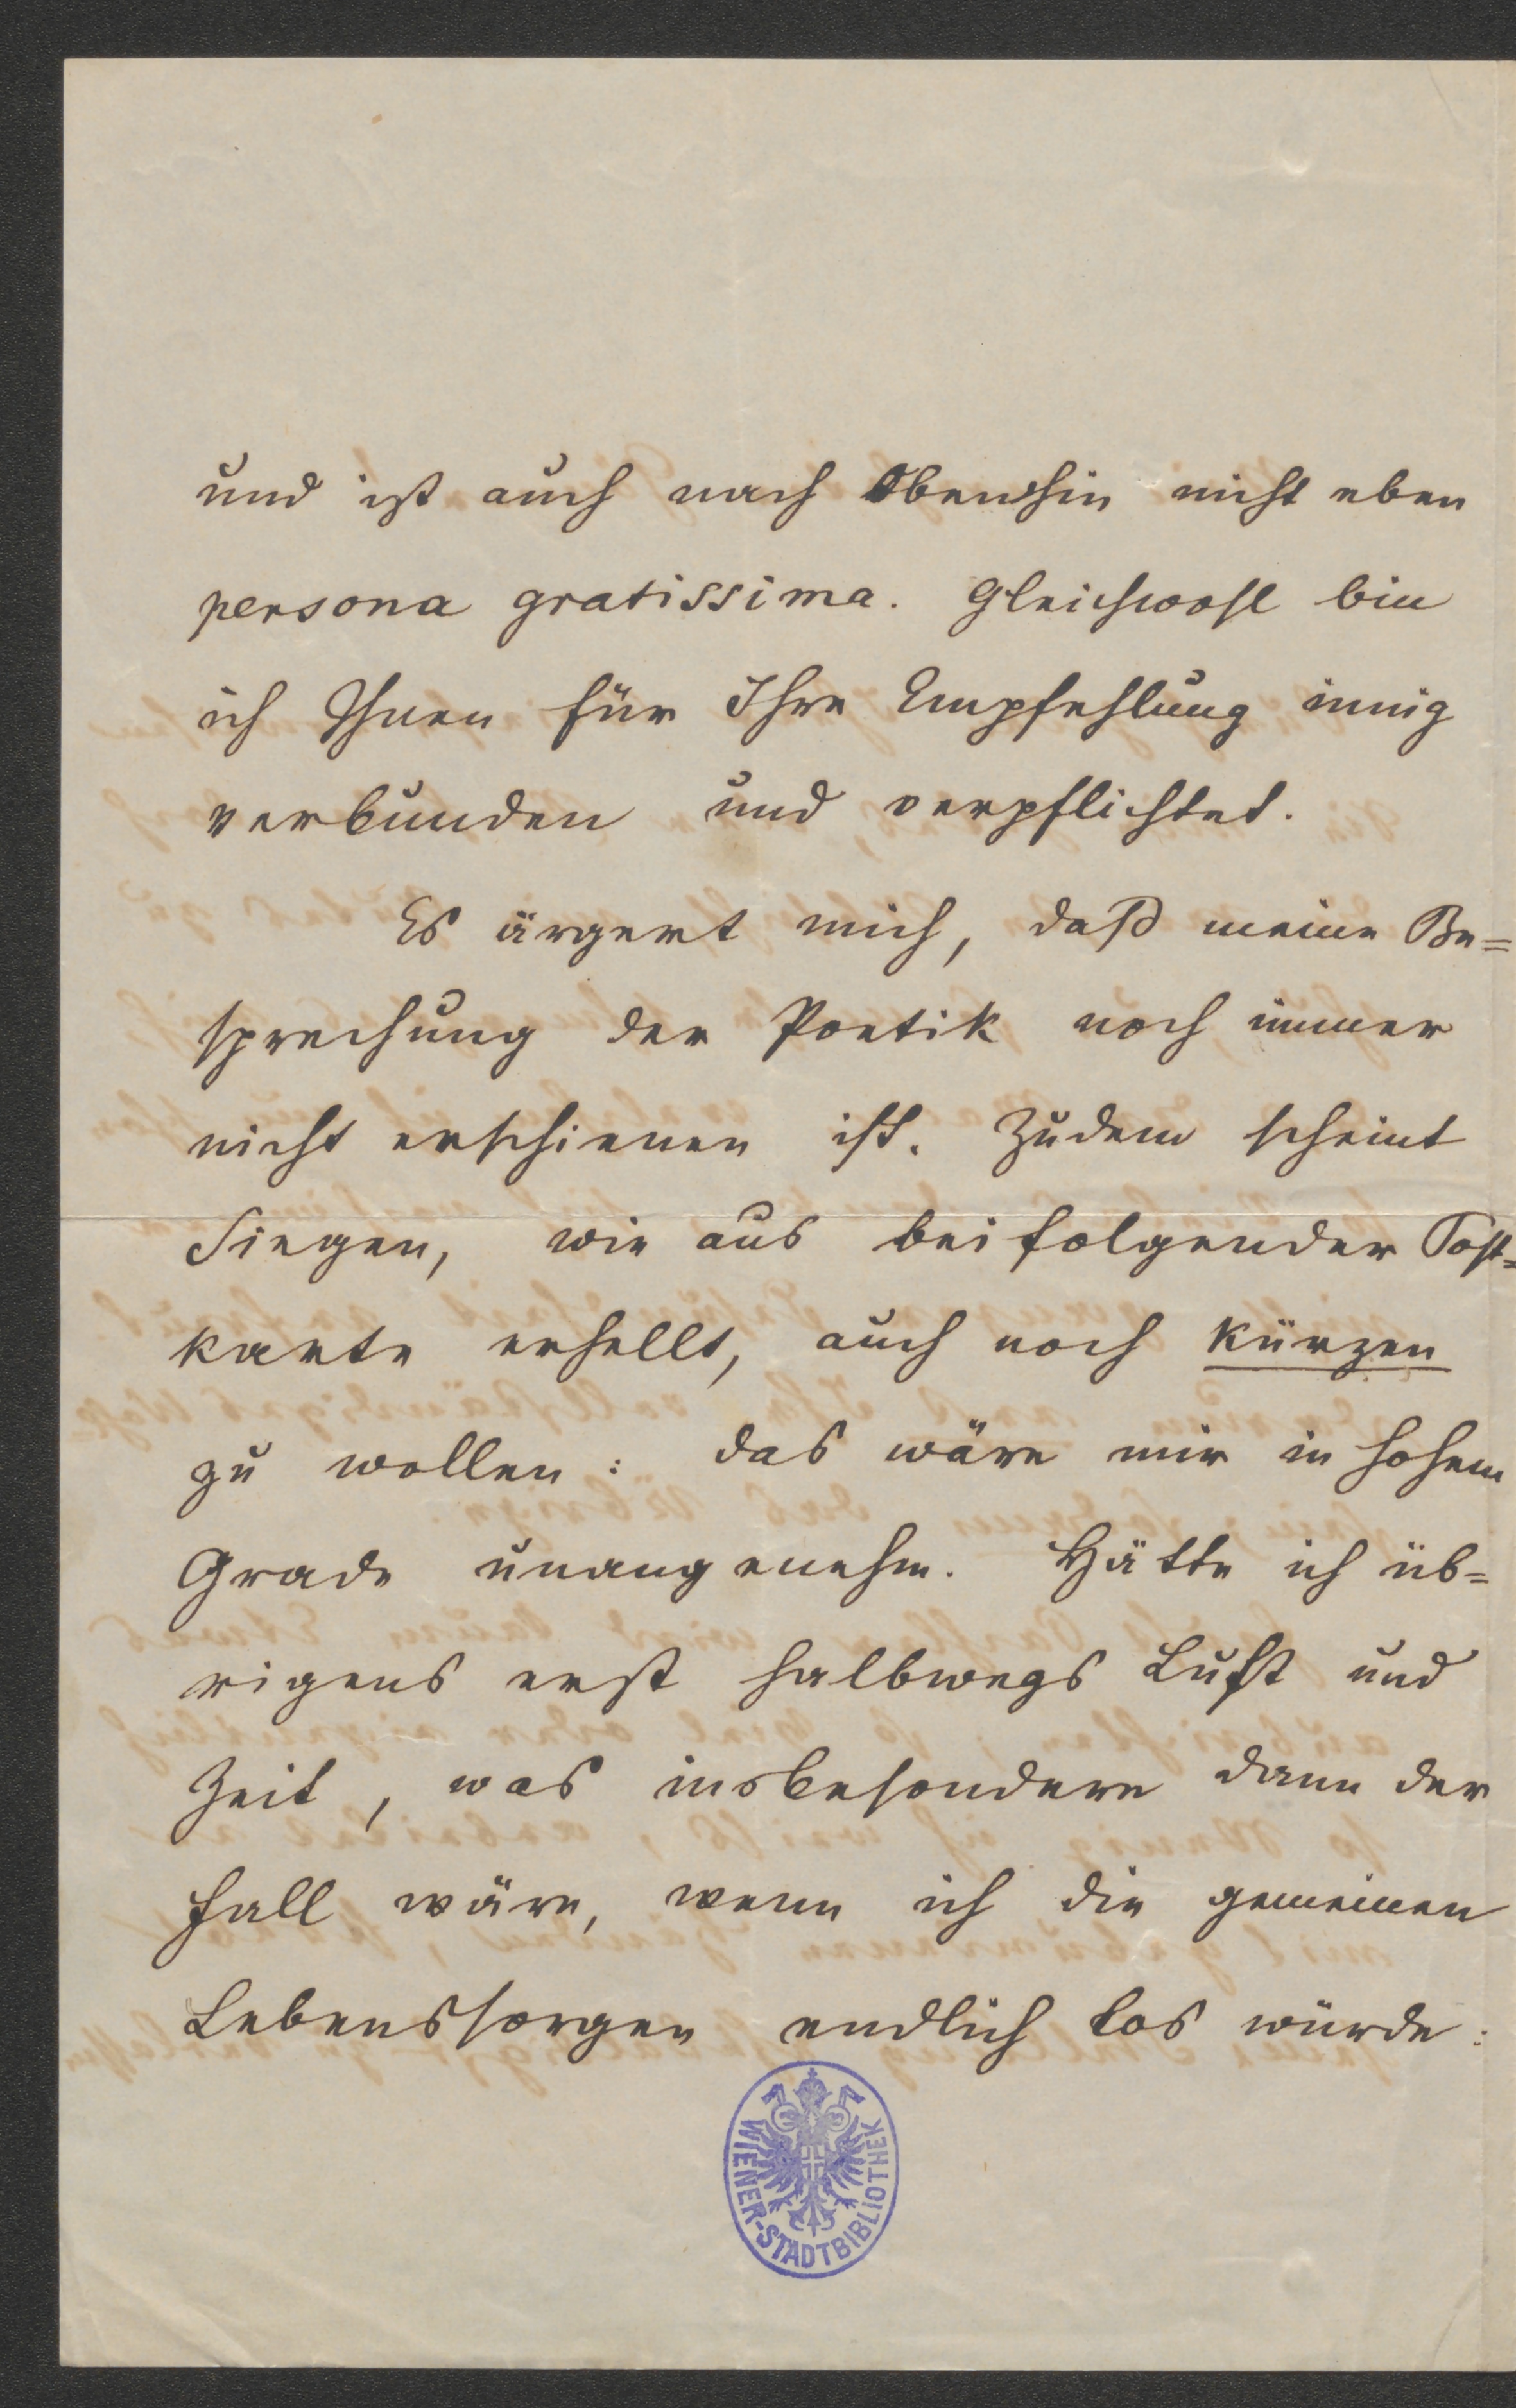 und ist auch nach Obenhin nicht eben
persona gratissima. Gleichwohl bin
ich Ihnen für Ihre Empfehlung innig
verbunden und verpflichtet.
Es ärgert mich, daß meine Be=
sprechung der Poetik noch immer
nicht erschienen ist. Zudem scheint
Singer, wie aus beifolgender Post=
karte erhellt, auch noch kürzen
zu wollen: das wäre mir in hohem
Grade unangenehm. Hätte ich üb=
rigens erst halbwegs Luft und
Zeit, was insbesondere dann der
Fall wäre, wenn ich die gemeinen
Lebenssorgen endlich los würde:
WIENER-STADTBIBLIOTHEK